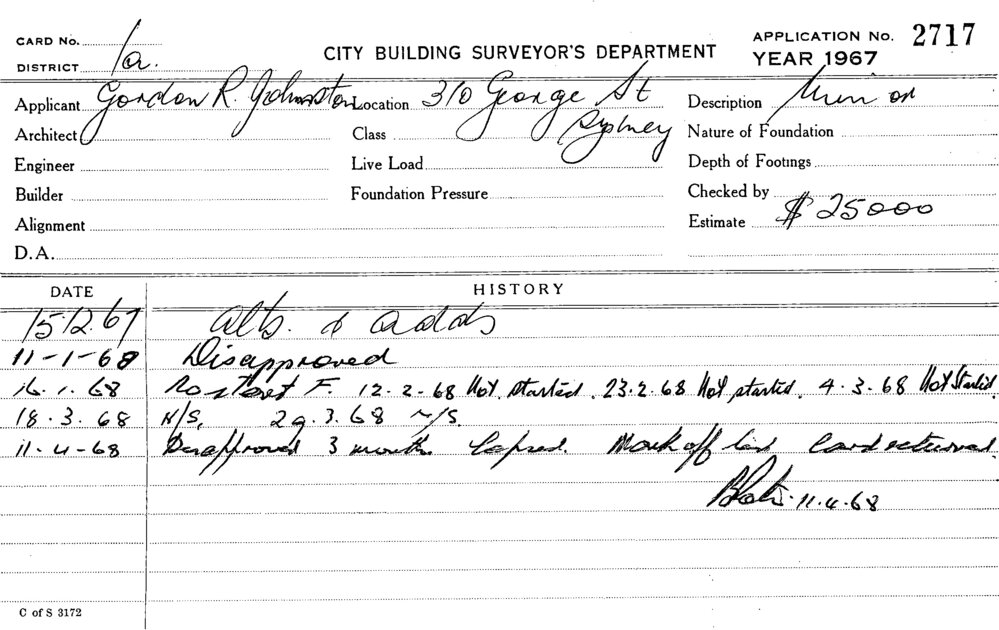 CARD No.
DISTRICT 1a.
CITY BUILDING SURVEYOR'S DEPARTMENT
APPLICATION No. 2717
YEAR 1967
Applicant Gordon R. Johnston Location 310 George St Description
Architect Class Sydney Nature of Foundation
Engineer Live Load Depth of Footings
Builder Foundation Pressure Checked by
Alignment Estimate $25000
D.A.
DATE HISTORY
15/12.67 Alts. & adds
11-1-68 Disapproved
16.1.68 No start F. 12-2-68 Not started. 23.2.68 Not started. 4.3.68 Not Started.
18.3.68 N/S, 29.3.68 N/S.
11-4-68 Disapproved 3 months lapsed. Mark off Card returned.
11.4.68
C of S 3172